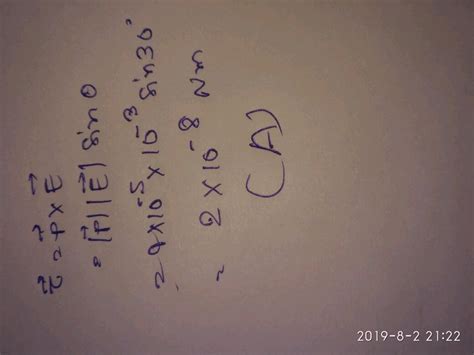 τ⃗ = P⃗ × E⃗
= |P⃗||E⃗| sin θ
= 4×10⁻⁵ × 10⁻³ sin30°
= 2 × 10⁻⁸ Nm
(A)
2019-8-2 21:22